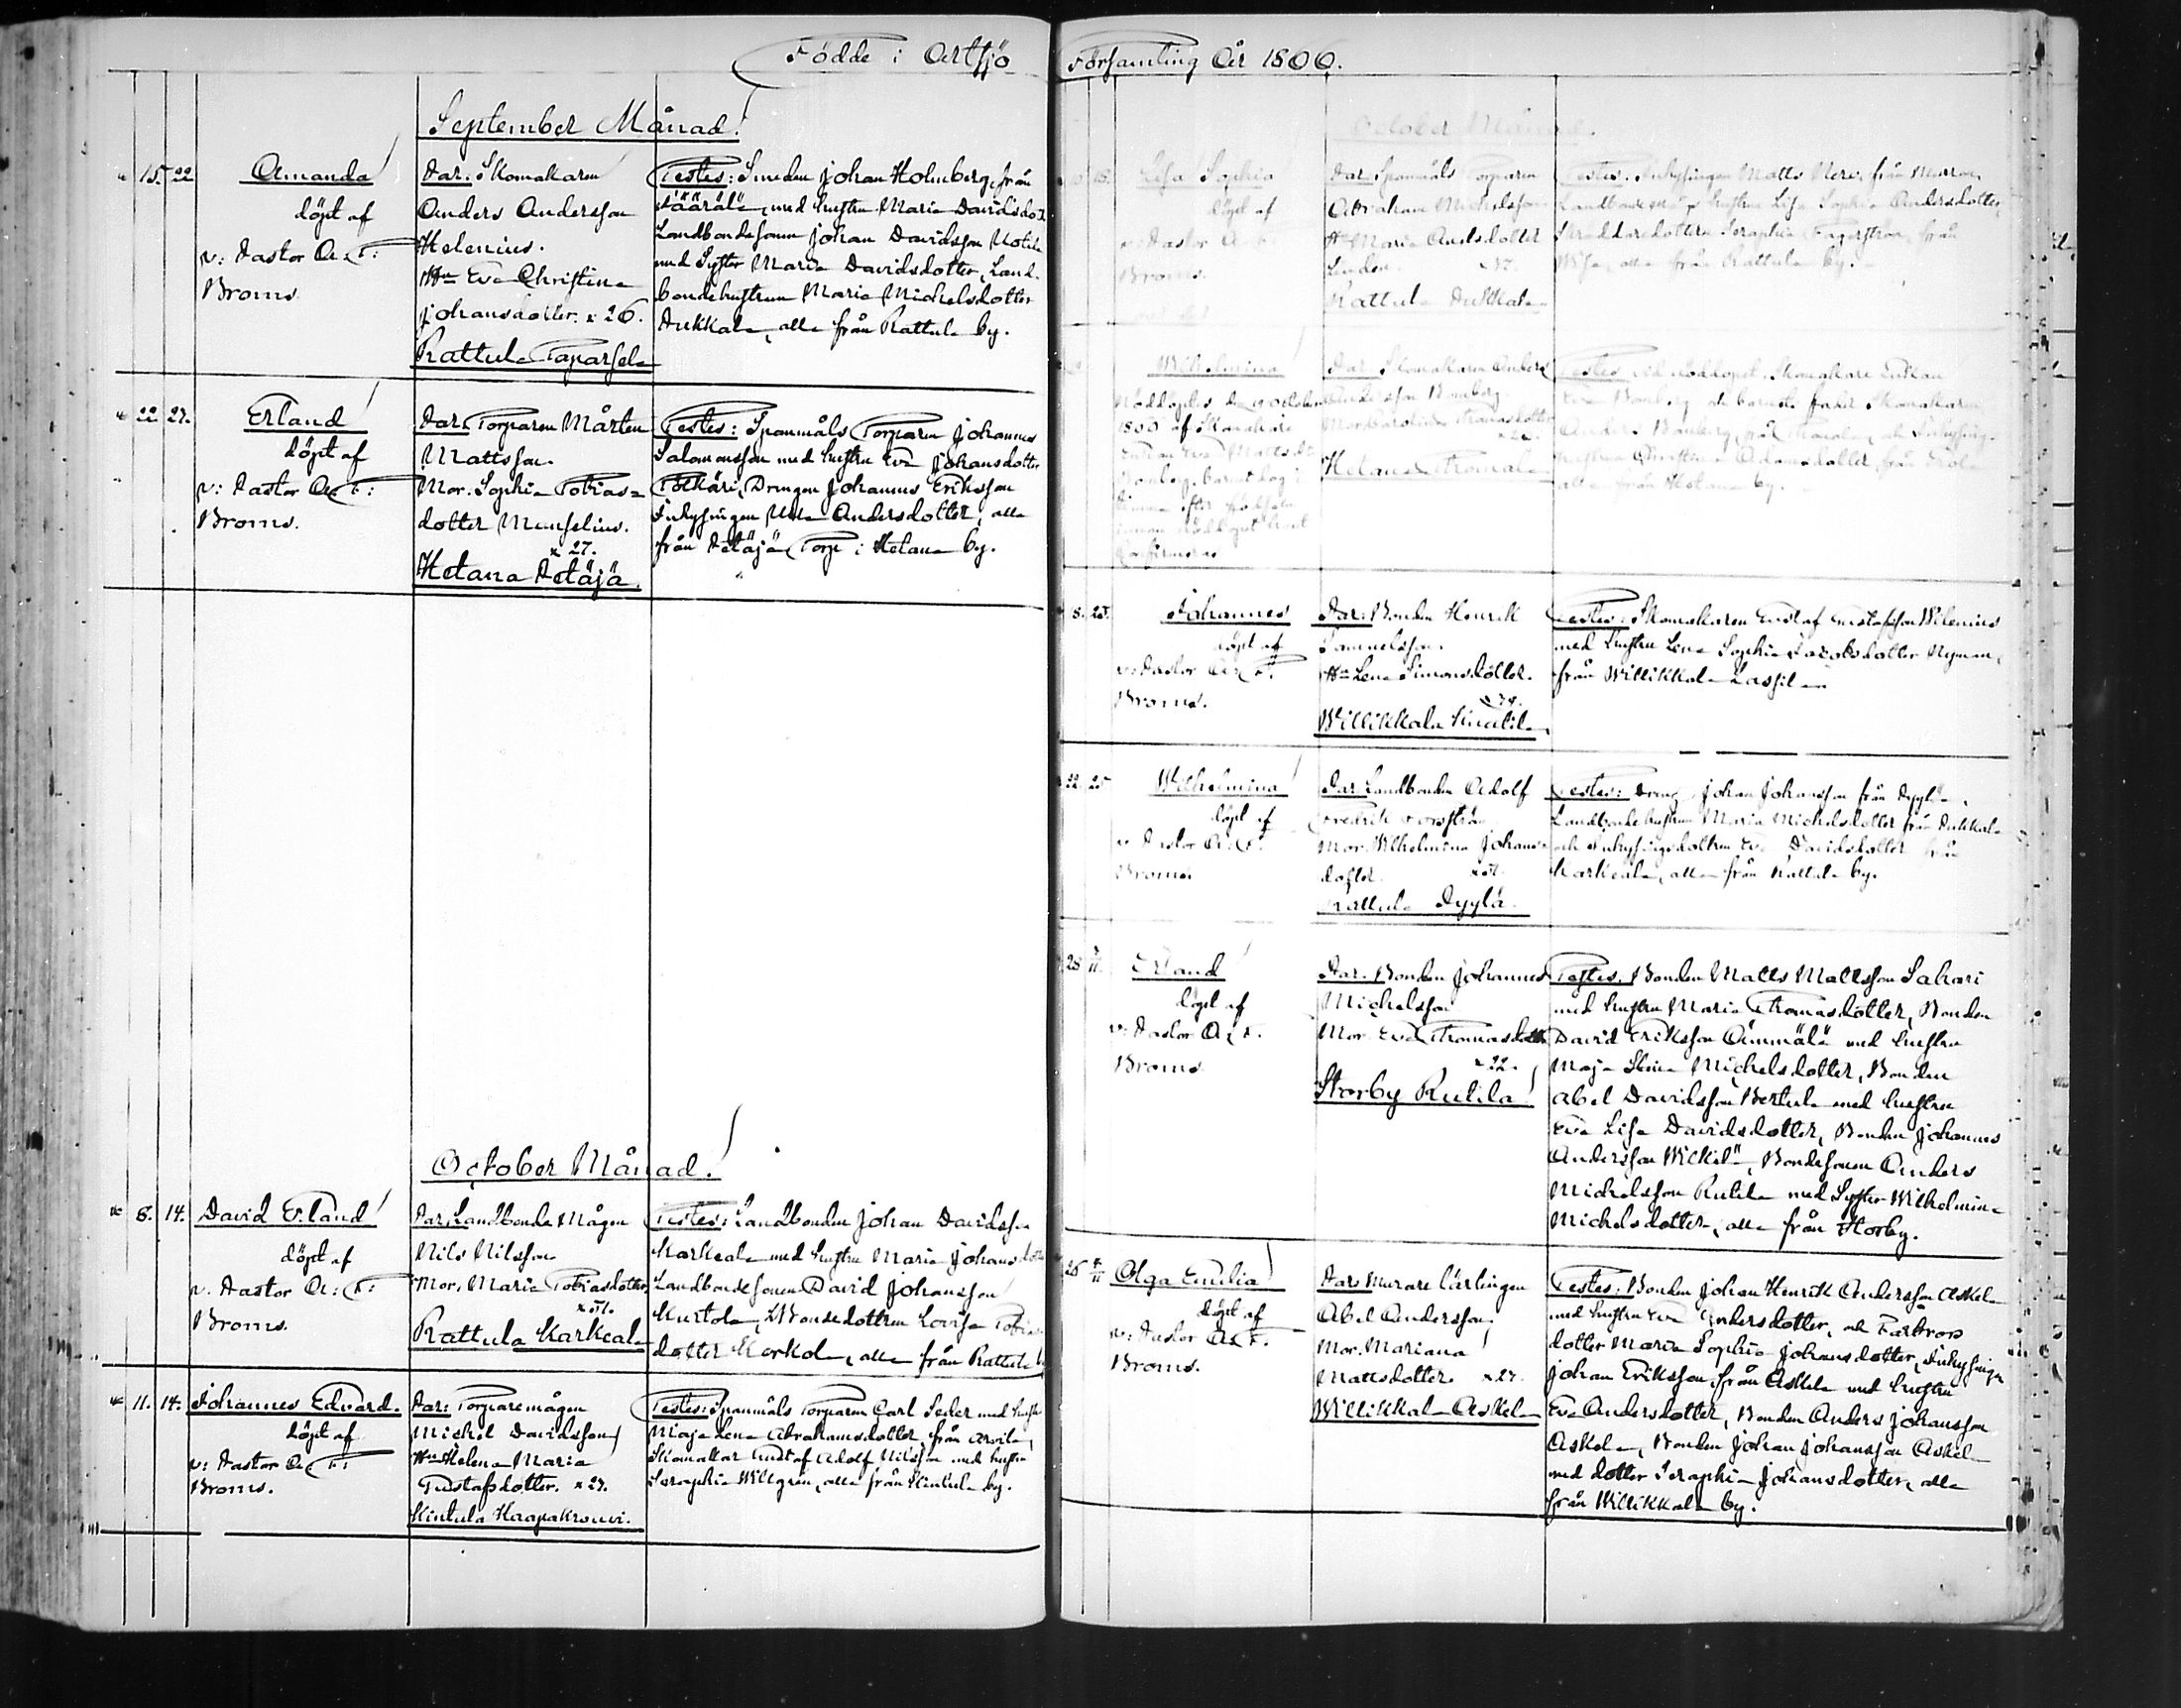 Födde i Artsjö Församling År 1866.
September Månad.
15. 22
Amanda
döpt af
v: Pastor A: F:
Broms.
Par. Skomakaren
Anders Andersson
Helenius.
Hu Eva Christina
Johansdotter. x 26.
Rattula
Testes: Smeden Johan Holmberg, från
Päärälä, med hustru Maria Davidsdot
Landbondesonen Johan Davidsson
med Syster Maria Davidsdotter, Land-
bondehustrun Maria Michelsdotter
Pukkala, alla från Rattula by.
22 27.
Erland
döpt af
v: Pastor A: F:
Broms.
Par. Torparen Mårten
Mattsson.
Mor. Sophia Tobias-
dotter Munselius.
x 27.
Hetana Petäjä.
Testes: Spanmåls Torparen Johannes
Salomonsson med hustru Eva Johansdotter
Drengen Johannes Eriksson
Inhysingen Andersdotter, alla
från Petäjä Torp i Hetana by.
October Månad.
8. 14.
David Erland
döpt af
v: Pastor A: F:
Broms.
Par. Landbonde Mågen
Nils Nilsson
Mor. Maria Tobiasdotter
Rattula Karkeala
Testes: Landbonden Johan Davidsson
Karkeala med hustru Maria Johansdotter
Landbondesonen David Johansson
Kurtola, Lovisa Tobias
dotter alla från Rattula
11. 14.
Johannes Edvard.
döpt af
v: Pastor A: F:
Broms.
Par: Torparemågen
Michel Davidsson
Hu Helena Maria
Gustafsdotter. x 27.
Kintula Haapakrouvi.
Testes: Spanmåls Torparen Carl Seder med hustru
Maja Lena Abrahamsdotter, från Arvila,
Skomakar Gustaf Adolf Nilsson med hustru
Seraphia Willgren, alla från Kintula by.
October Månad.
15.
Lisa Sophia
döpt af
v: Pastor A: F:
Broms.
Par Spanmåls Torparen
Abraham Michelsson
Hu Maria Andsdotter
Linden.
Rattula Pukkala
Testes: Inhysingen Matts
hustru Lisa Sophia Andersdotter,
Skräddaredottern Seraphia Fagerström, från
alla från Rattula by.
Wilhelmina
Nöddöptes den October
1866 af Skomakare
Eva Matts
Par. Skomakaren Anders
Andersson Bomberg
Mor Carolina Thomasdotter
Hetana
Testes vid nöddopet. Skomakare Enkan
Eva Bomberg och barnets fader Skomakaren
Anders Bomberg, och Inhysing-
hustrun Christina Adamsdotter, från
alla från Hetana by.
8. 25.
Johannes
döpt af
v: Pastor A: F:
Broms.
Par: Bonden Henrik
Samuelsson.
Hu Lena Simonsdotter.
Willikkala
Testes: Skomakaren Gustaf Gustafsson Wilenius
med hustru Lena Sophia Jacobsdotter Nyman,
från Willikkala Lassila
22. 25
Wilhelmina
döpt af
v: Pastor A: F:
Broms.
Par. Landbonden Adolf
Fredrik Forsström
Mor. Wilhelmina Johans-
dotter.
Rattula Pyylä.
Testes: Dreng Johan Johansson från Pyylä,
Landbondehustrun Maria Michelsdotter från Pukkala
och Inhysingsdottren Eva Davidsdotter från
Karkeala, alla från Rattula by.
28 11.
Erland
döpt af
v: Pastor A: F.
Broms
Par. Bonden Johannes
Michelsson
Mor Eva Thomasdotter
x 22.
Storby Rutila
Testes. Bonden Matts Mattsson Sahari
med hustru Maria Thomasdotter, Bonden
David Eriksson Ämmälä med hustru
Maja Stina Michelsdotter, Bonden
Abel Davidsson Bertula med hustru
Eva Lisa Davidsdotter, Bonden Johannes
Andersson Wilkilä, Bondesonen Anders
Michelsson Rutila med Syster Wilhelmina
Michelsdotter, alla från Storby.
26 11
Olga Emilia
döpt af
v: Pastor A: F.
Broms.
Par. Murare lärlingen
Abel Andersson.
Mor. Mariana
Mattsdotter. x 27.
Willikkala Askela
Testes: Bonden Johan Henrik Andersson Askela
med hustru Eva Andersdotter, och Farbrors
dotter Maria Sophia Johansdotter, Inhysingen
Johan Eriksson, från Askela med hustru
Eva Andersdotter, Bonden Anders Johansson
Askola, Bonden Johan Johansson Askela
med dotter Seraphia Johansdotter, alla
från Willikkala by.